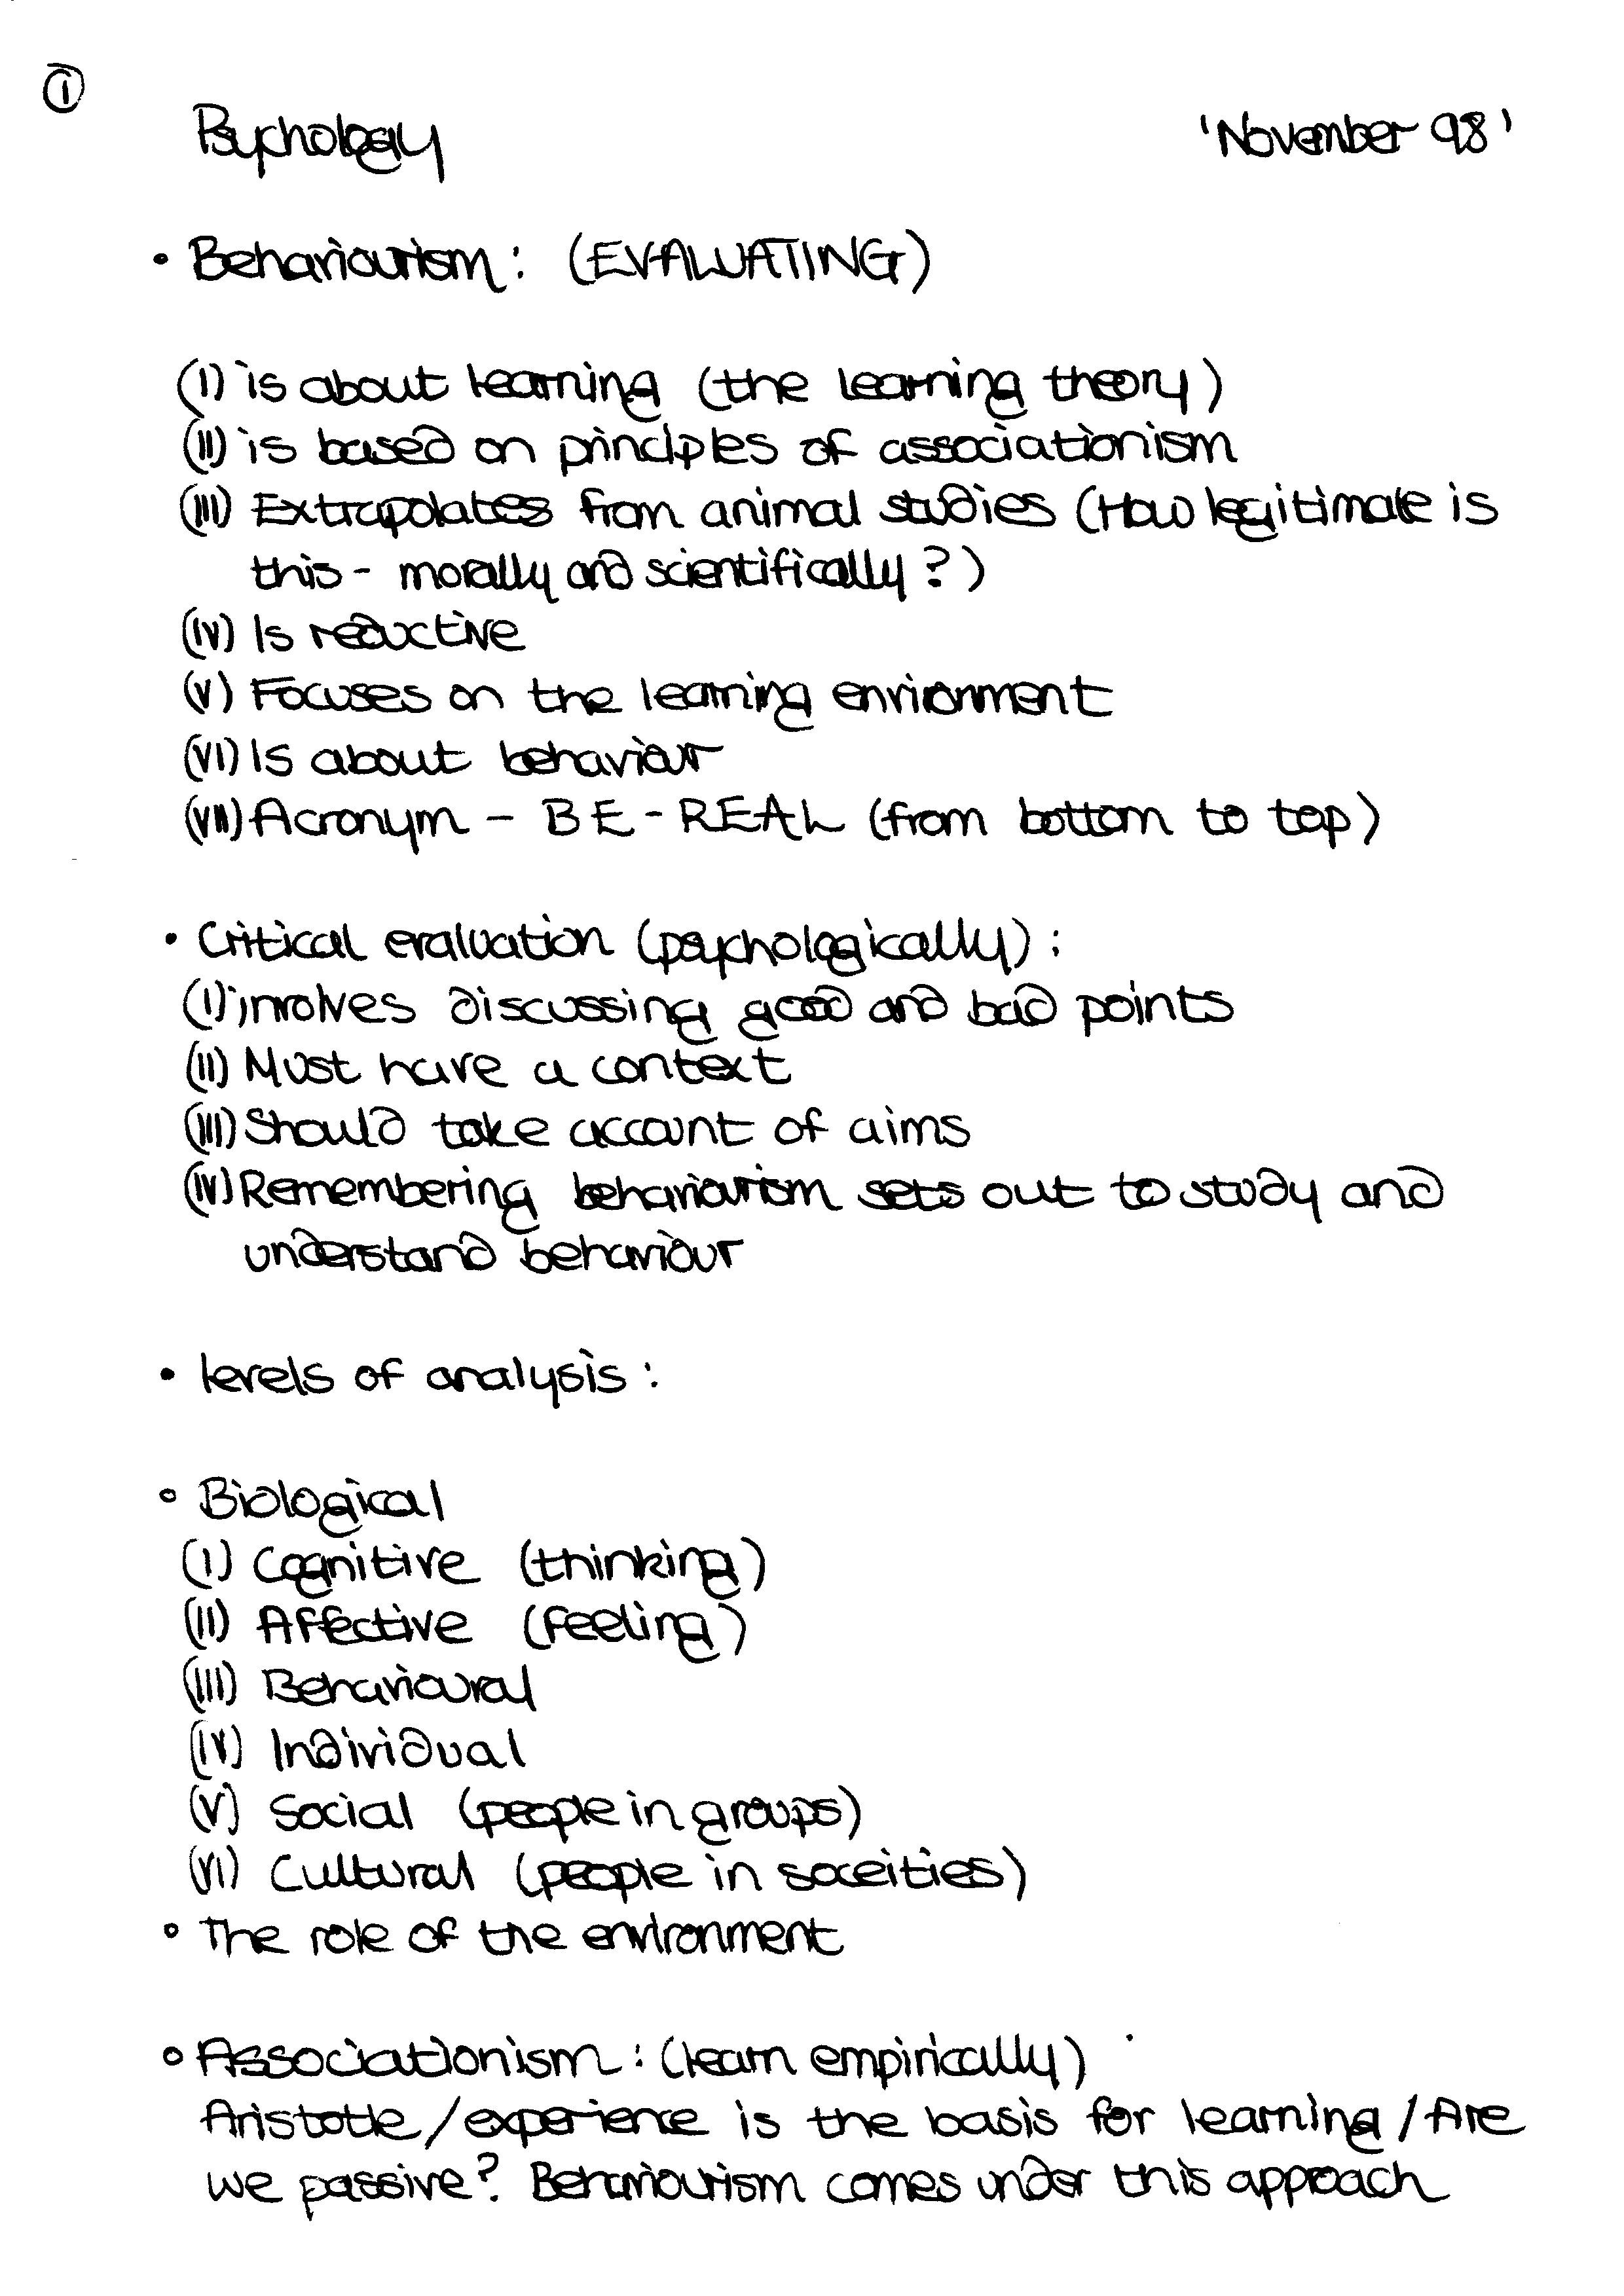 ①
Psychology 'November 98'
• Behaviourism: (EVALUATING)
(I) is about learning (the learning theory)
(II) is based on principles of associationism
(III) Extrapolates from animal studies (How legitimate is
this - morally and scientifically?)
(IV) Is reductive
(V) Focuses on the learning environment
(VI) Is about behaviour
(VII) Acronym - BE-REAL (from bottom to top)
• Critical evaluation (psychologically):
(I) involves discussing good and bad points
(II) Must have a context
(III) Should take account of aims
(IV) Remembering behaviourism sets out to study and
understand behaviour
• levels of analysis:
° Biological
(I) Cognitive (thinking)
(II) Affective (feeling)
(III) Behavioural
(IV) Individual
(V) Social (people in groups)
(VI) Cultural (people in soceities)
° The role of the environment
° Associationism: (learn empirically)
Aristotle/experience is the basis for learning/Are
we passive? Behaviourism comes under this approach